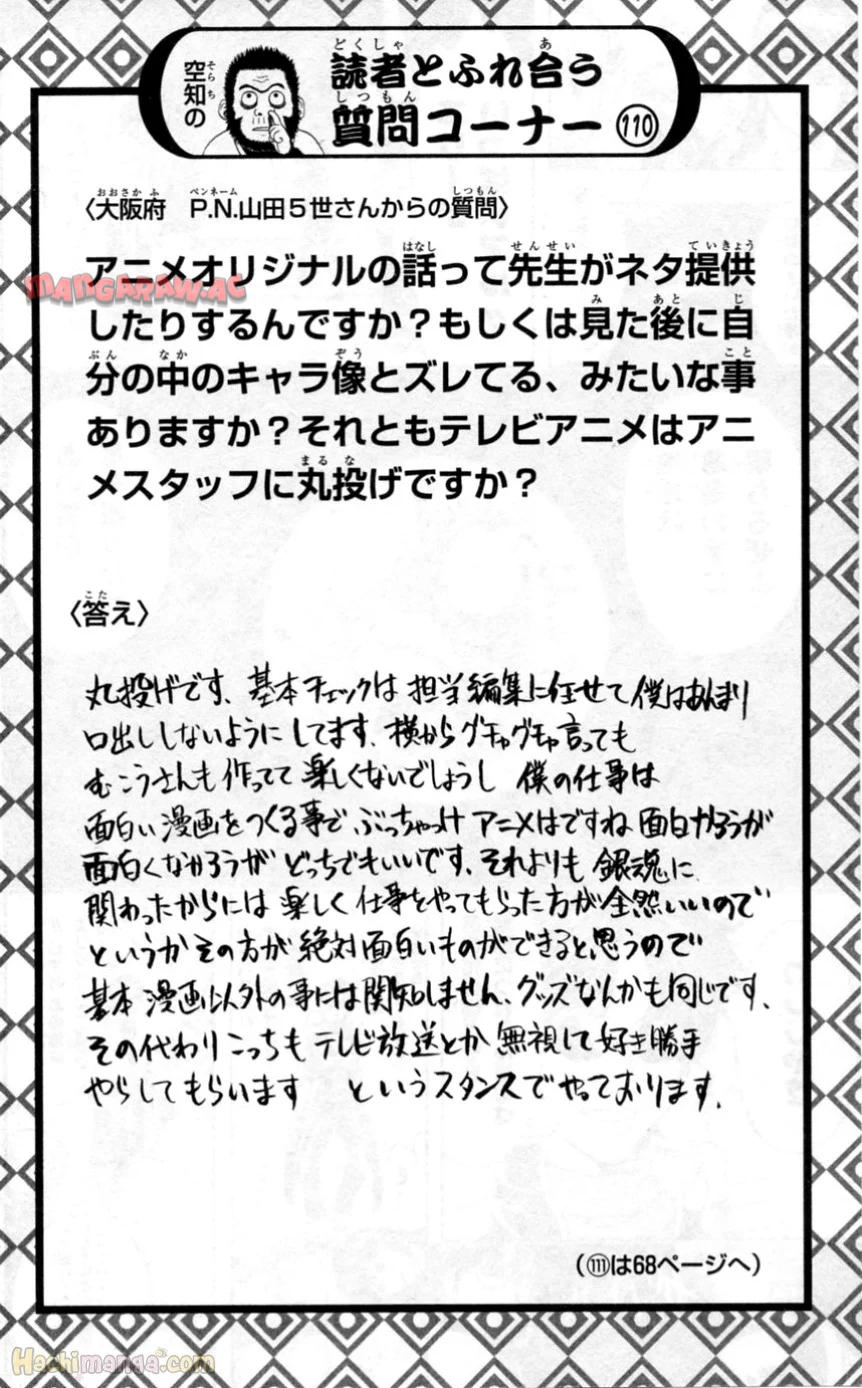 空知の
読者とふれ合う
質問コーナー 110
〈大阪府 P.N.山田5世さんからの質問〉
アニメオリジナルの話って先生がネタ提供
MANGARAW.AC
したりするんですか?もしくは見た後に自
分の中のキャラ像とズレてる、みたいな事
ありますか?それともテレビアニメはアニ
メスタッフに丸投げですか?
〈答え〉
丸投げです、基本チェックは担当編集に任せて僕はあんまり
口出ししないようにしてます、横からグチャグチャ言っても
むこうさんも作ってて楽しくないでしょうし 僕の仕事は
面白い漫画をつくる事で、ぶっちゃけアニメはですね 面白かろうが
面白くなかろうが どっちでもいいです、それよりも 銀魂に
関わったからには 楽しく仕事をやってもらった方が全然いいので
というかその方が絶対面白いものができると思うので
基本 漫画以外の事には関知しません、グッズなんかも同じです、
その代わりこっちもテレビ放送とか 無視して好き勝手
やらしてもらいます というスタンスでやっております.
(111は68ページへ)
Hachimanga.com